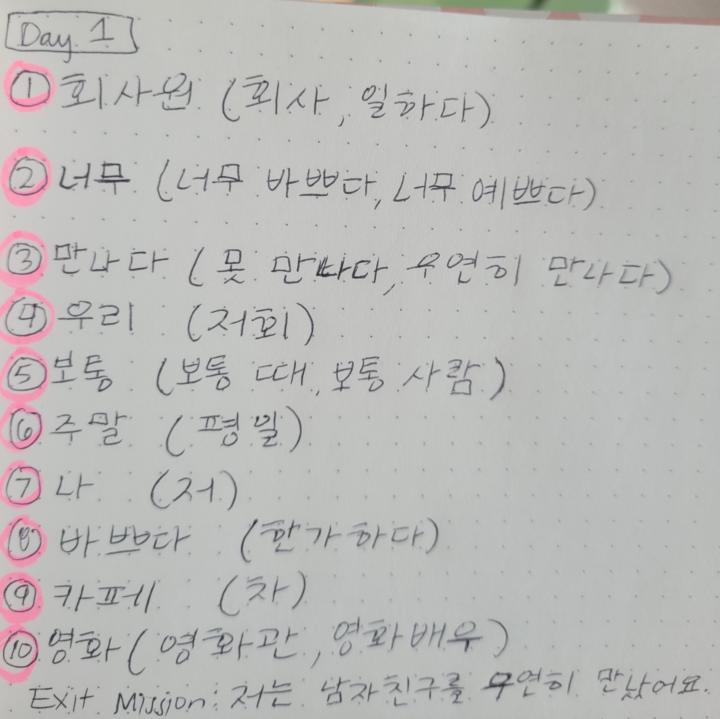 Day 1
① 회사원 (회사, 일하다)
② 너무 (너무 바쁘다, 너무 예쁘다)
③ 만나다 (못 만나다, 우연히 만나다)
④ 우리 (저희)
⑤ 보통 (보통 때, 보통 사람)
⑥ 주말 (평일)
⑦ 나 (저)
⑧ 바쁘다 (한가하다)
⑨ 카페 (차)
⑩ 영화 (영화관, 영화배우)
Exit Mission: 저는 남자친구를 우연히 만났어요.